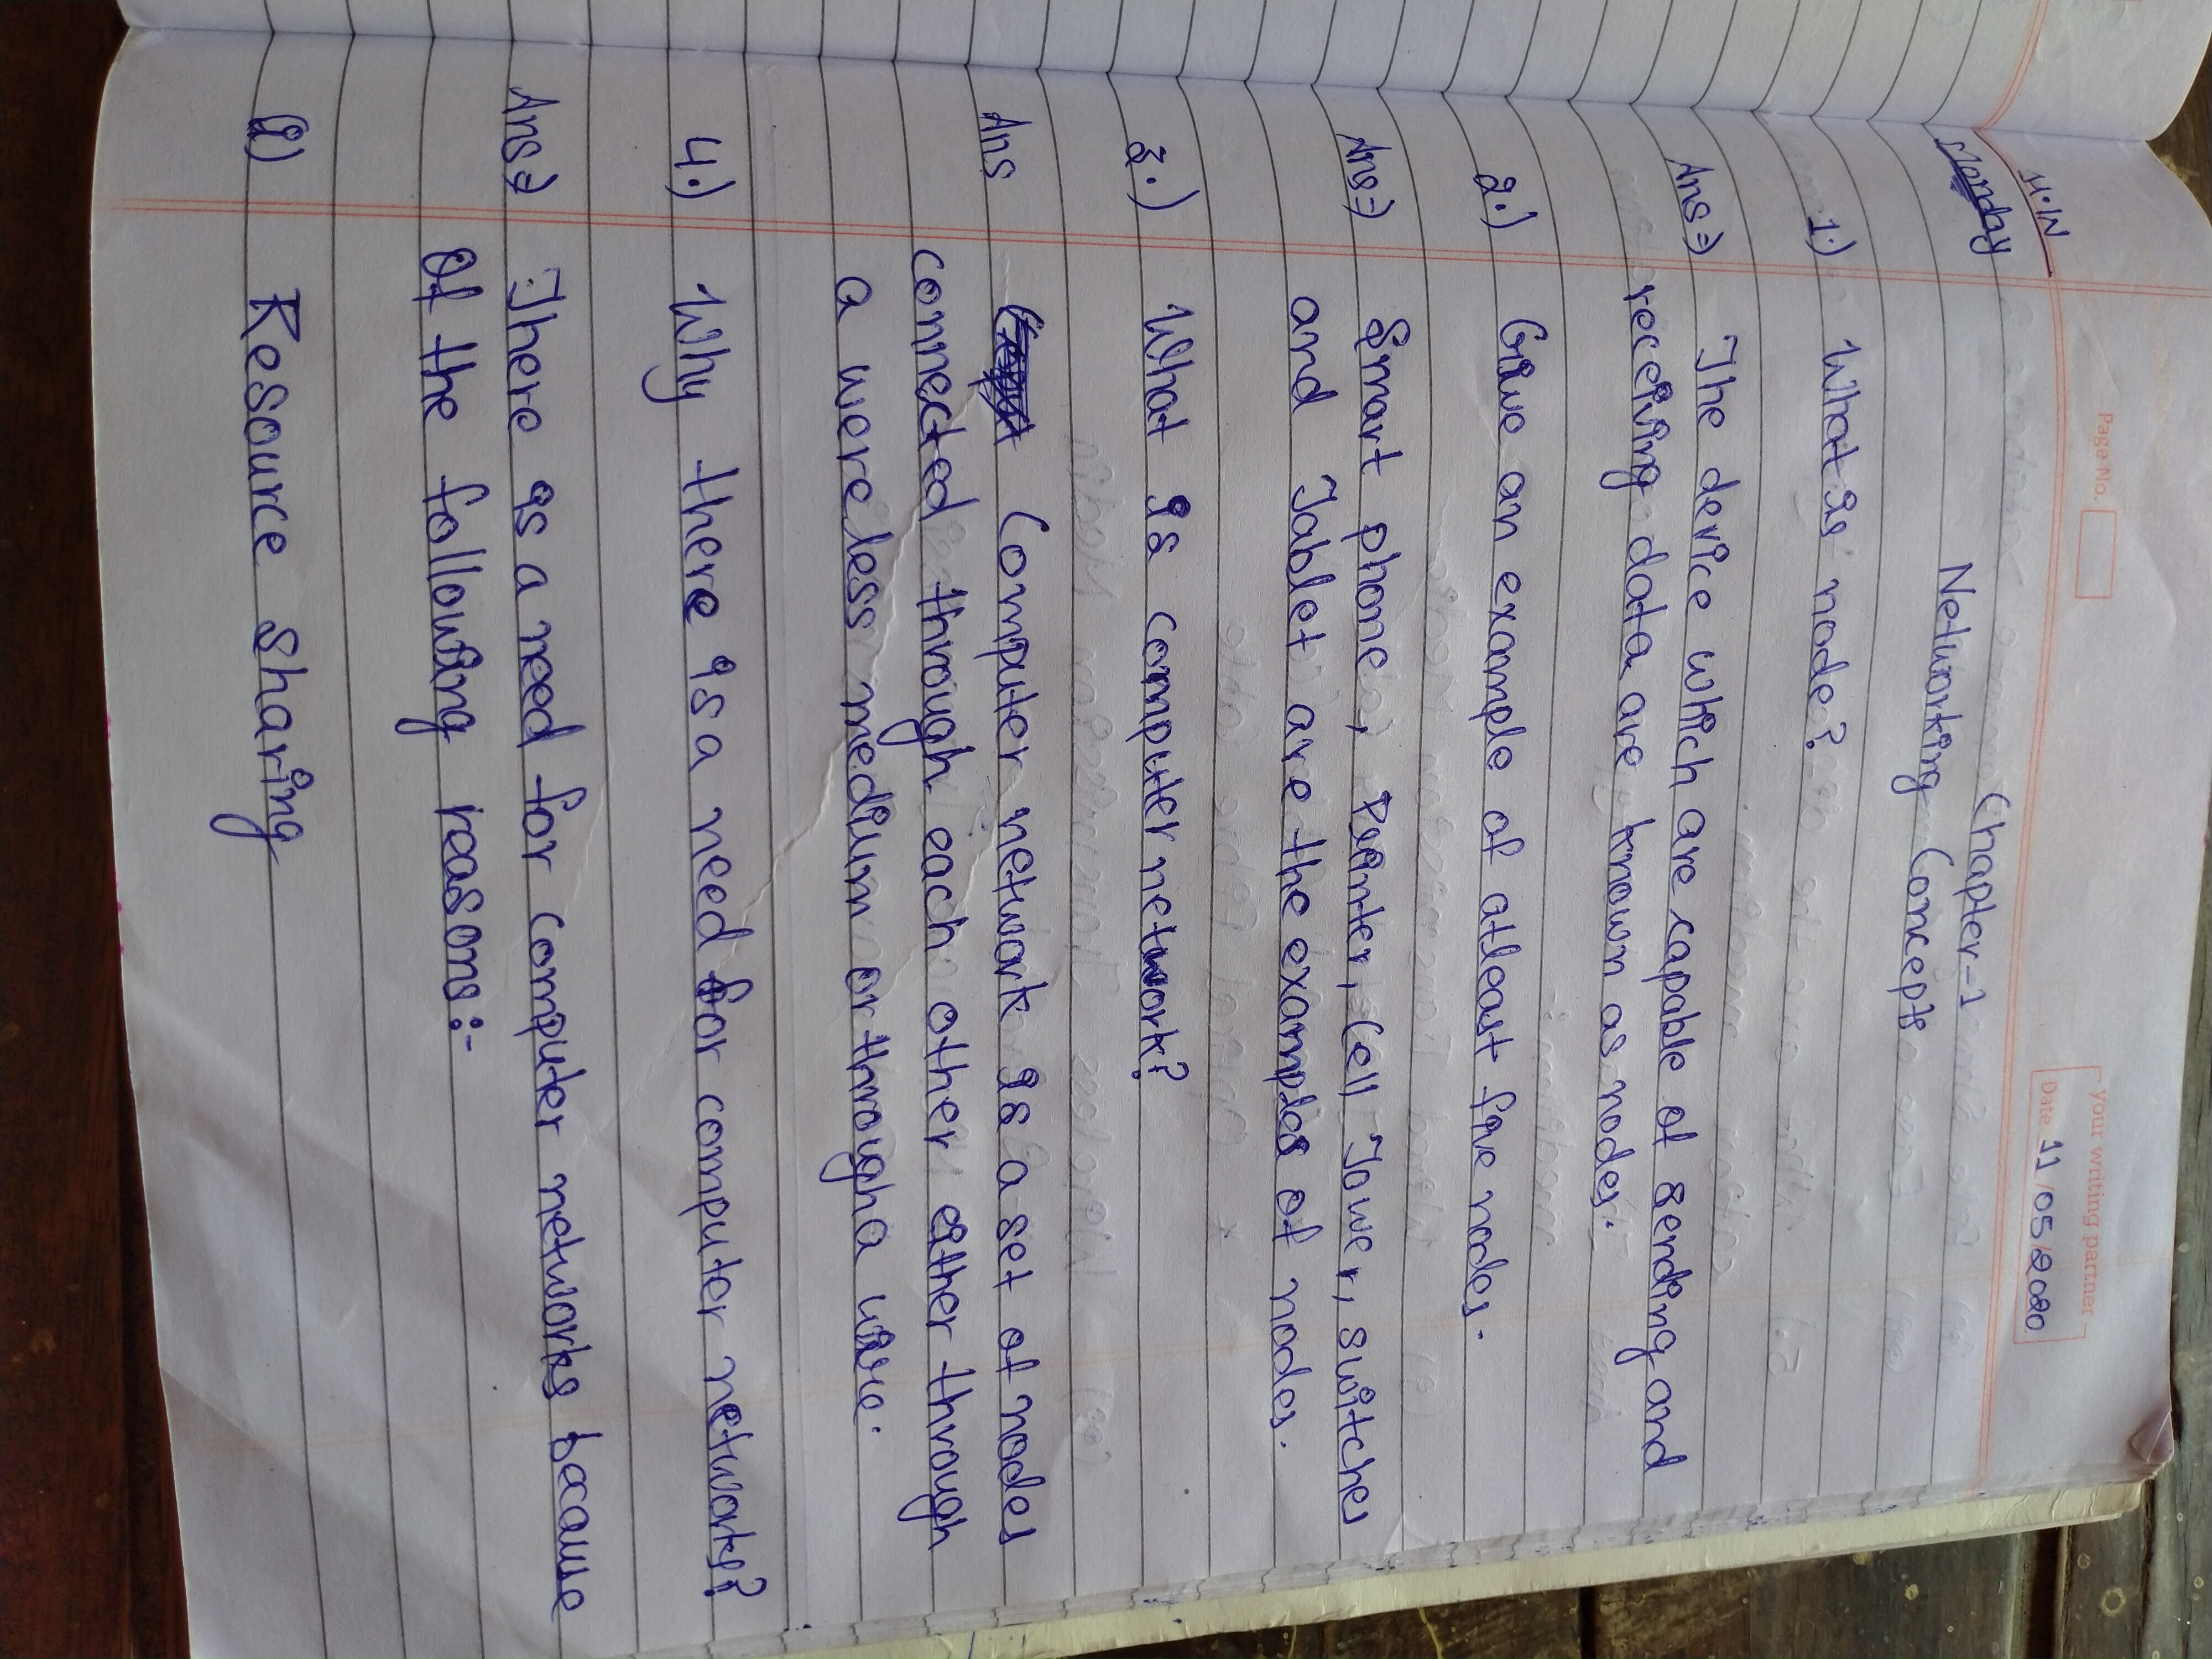 H.W
Page No.
Your writing partner
Date 11/05/2020
Monday
Chapter-1
Networking Concepts
1.) What is node?
Ans⇒ The device which are capable of sending and
receiving data are known as nodes.
2.) Give an example of atleast five nodes.
Ans⇒ Smart phone, Printer, Cell Tower, switches
and Tablet are the examples of nodes.
3.) What is computer network?
Ans Computer network is a set of nodes
connected through each other either through
a wereless medium or through a wire.
4.) Why there is a need for computer networks?
Ans⇒ There is a need for computer networks because
Of the following reasons:-
i) Resource sharing